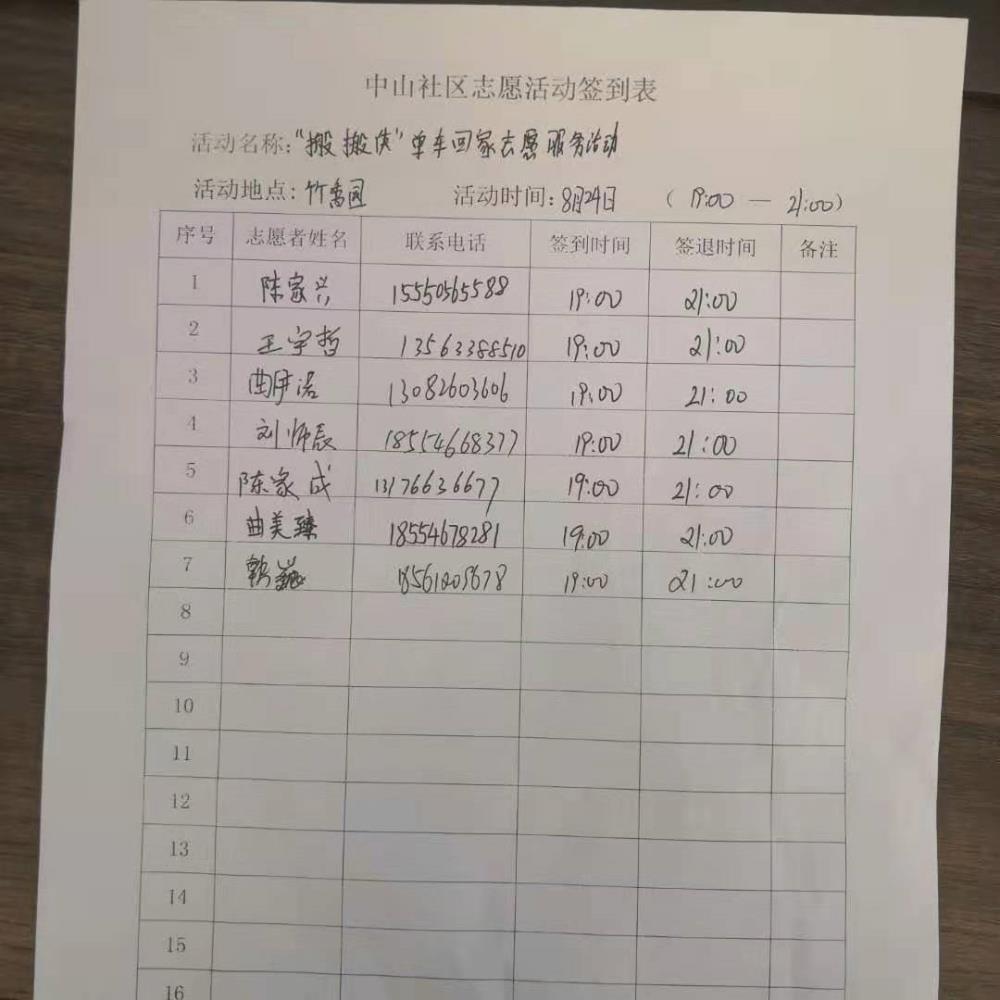 中山社区志愿活动签到表
活动名称:“搬搬侠”单车回家志愿服务活动
活动地点:竹香园 活动时间:8月24日 (19:00 — 21:00)
序号 志愿者姓名 联系电话 签到时间 签退时间 备注
1 陈家兴 15550565588 19:00 21:00
2 王宇哲 13563388510 19:00 21:00
3 13082603606 19:00 21:00
4 刘师辰 18554668377 19:00 21:00
5 陈家成 13176636677 19:00 21:00
6 曲美臻 18554678281 19:00 21:00
7 19:00 21:00
8
9
10
11
12
13
14
15
16